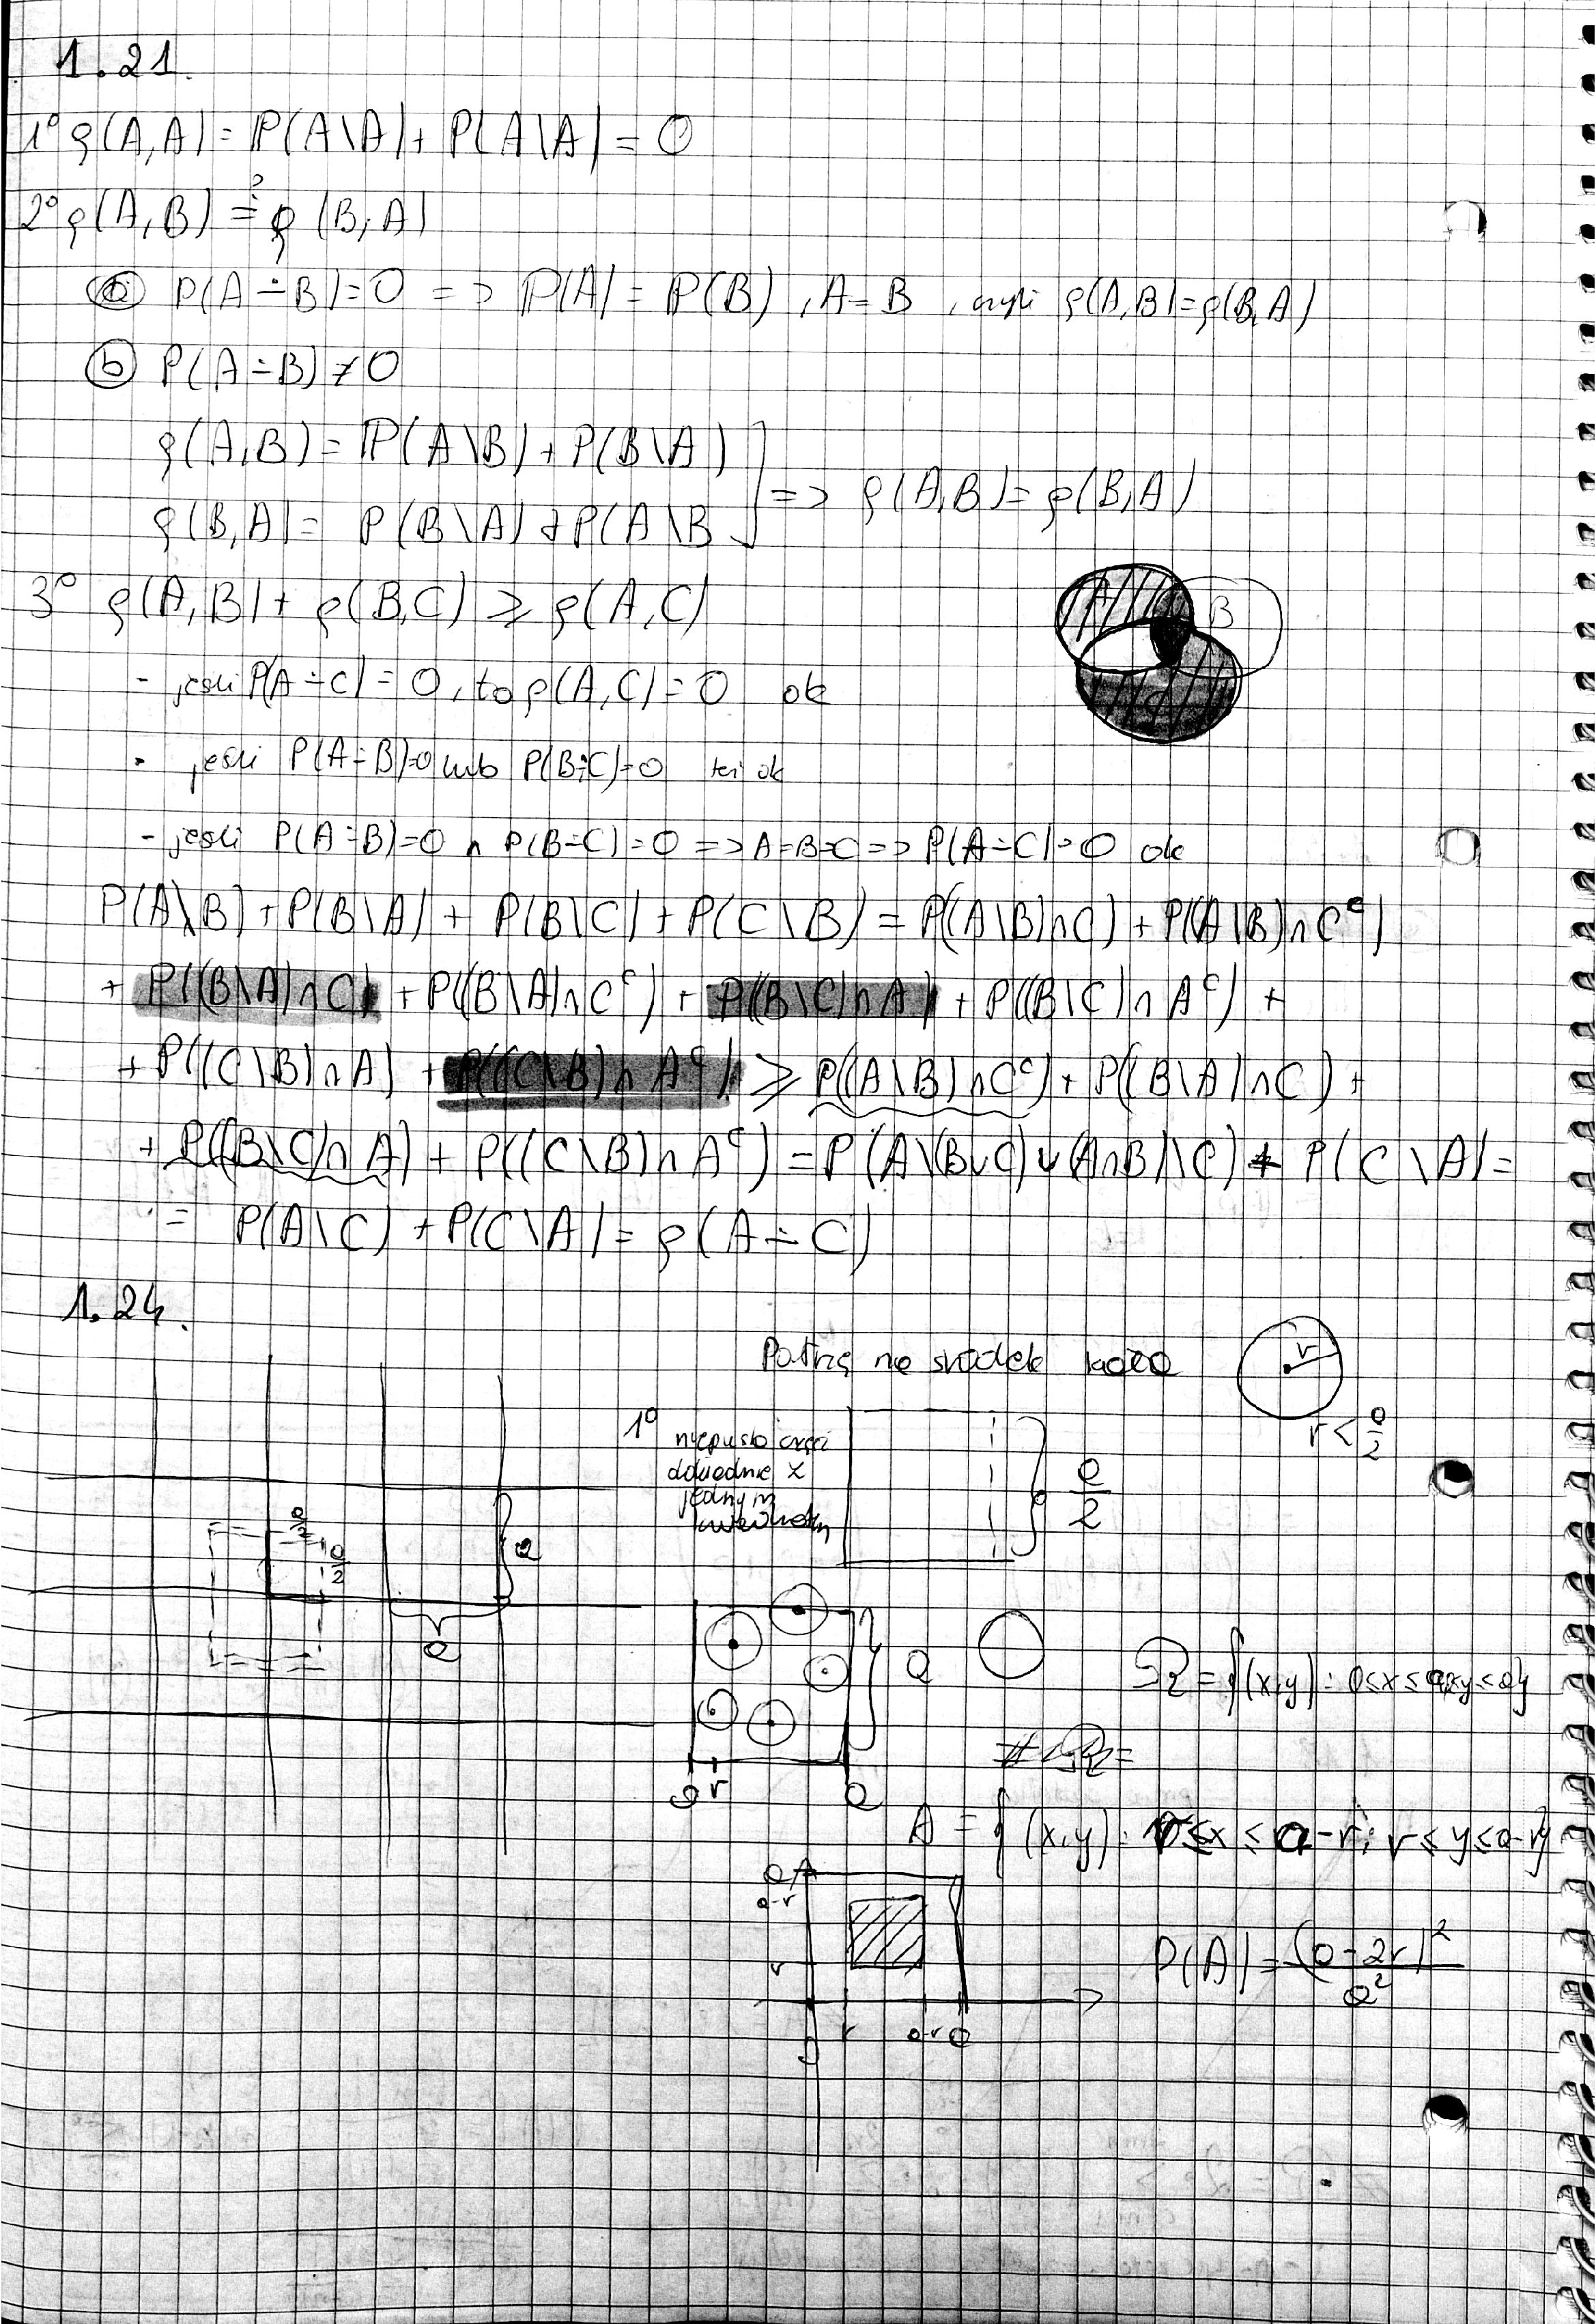 1.21.
1° ρ(A,A) = P(A\A) + P(A\A) = 0
2° ρ(A,B) =? ρ(B,A)
ⓐ P(A÷B)=0 => P(A) = P(B), A=B, czyli ρ(A,B)=ρ(B,A)
ⓑ P(A÷B) ≠ 0
ρ(A,B) = P(A\B) + P(B\A)
ρ(B,A) = P(B\A) + P(A\B
] => ρ(A,B) = ρ(B,A)
3° ρ(A,B) + ρ(B,C) ≥ ρ(A,C)
A B
C
- jeśli P(A÷C) = 0, to ρ(A,C) = 0 ok
- jeśli P(A÷B)=0 lub P(B÷C)=0 też ok
- jeśli P(A÷B)=0 ∧ P(B÷C)=0 => A=B=C => P(A÷C)=0 ok
P(A\B) + P(B\A) + P(B\C) + P(C\B) = P((A\B)∩C) + P((A\B)∩Cᶜ)
+ P((B\A)∩C) + P((B\A)∩Cᶜ) + P((B\C)∩A) + P((B\C)∩Aᶜ) +
+ P((C\B)∩A) + P((C\B)∩Aᶜ) ≥ P((A\B)∩Cᶜ) + P((B\A)∩C) +
+ P((B\C)∩A) + P((C\B)∩Aᶜ) = P(A\(B∪C)∪(A∩B)\C) + P(C\A) =
= P(A\C) + P(C\A) = ρ(A÷C)
1.24.
Patrzę na środek koła
r
r < a/2
1° niepusta część
dokładnie z
jednym
kwadratem
a/2
a/2
a/2
a
a
a
0 r a
Ω = {(x,y): 0≤x≤a, 0≤y≤a}
#Ω=
A = {(x,y): r≤x≤a-r; r≤y≤a-r}
a
a-r
r
0 r a-r a
P(A) = (a-2r)²/a²